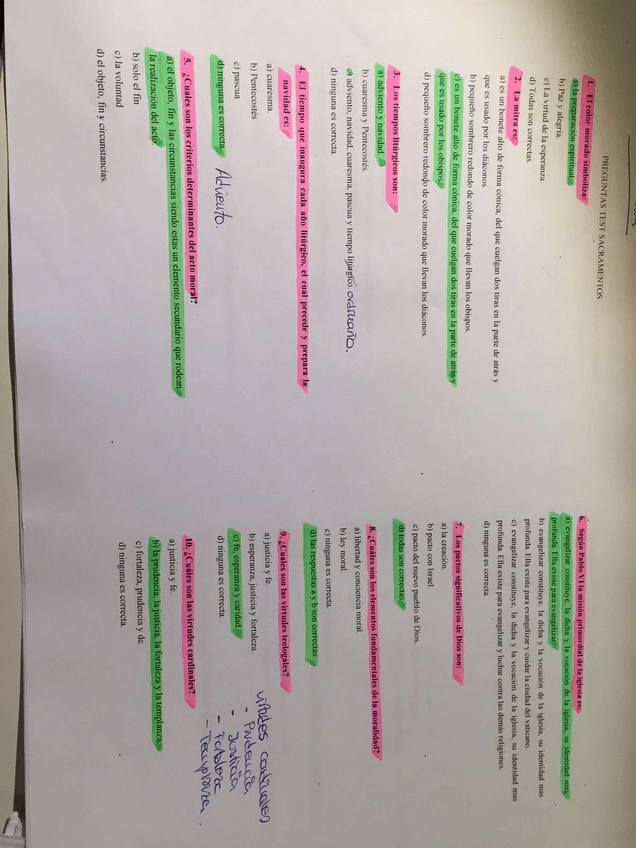 PREGUNTAS TEST SACRAMENTOS
1. El color morado simboliza:
a) la preparación espiritual.
b) Paz y alegría.
c) La virtud de la esperanza.
d) Todas son correctas.
2. La mitra es:
a) es un bonete alto de forma cónica, del que cuelgan dos tiras en la parte de atrás y
que es usado por los diáconos.
b) pequeño sombrero redondo de color morado que llevan los obispos.
c) es un bonete alto de forma cónica, del que cuelgan dos tiras en la parte de atrás y
que es usado por los obispos.
d) pequeño sombrero redondo de color morado que llevan los diáconos.
3. Los tiempos litúrgicos son:
a) adviento y navidad.
b) cuaresma y Pentecostés.
c) adviento, navidad, cuaresma, pascua y tiempo litúrgico. ordinario.
d) ninguna es correcta.
4. El tiempo que inaugura cada año litúrgico, el cual precede y prepara la
navidad es:
a) cuaresma.
b) Pentecostés
c) pascua
d) ninguna es correcta. Adviento.
5. ¿Cuales son los criterios determinantes del acto moral?
a) el objeto, fin y las circunstancias siendo estas un elemento secundario que rodean
la realización del acto.
b) solo el fin
c) la voluntad
d) el objeto, fin y circunstancias.
6. Según Pablo VI la misión primordial de la iglesia es:
a) evangelizar constituye, la dicha y la vocación de la iglesia, su identidad mas
profunda. Ella existe para evangelizar.
b) evangelizar constituye, la dicha y la vocación de la iglesia, su identidad mas
profunda. Ella existe para evangelizar y cuidar la ciudad del vaticano.
c) evangelizar constituye, la dicha y la vocación de la iglesia, su identidad mas
profunda. Ella existe para evangelizar y luchar contra las demás religiones.
d) ninguna es correcta.
7. Los pactos significativos de Dios son:
a) la creación.
b) pacto con Israel.
c) pacto del nuevo pueblo de Dios.
d) todas son correctas.
8. ¿Cuáles son los elementos fundamentales de la moralidad?
a) libertad y conciencia moral.
b) ley moral.
c) ninguna es correcta.
d) las respuestas a y b son correctas.
9. ¿Cuáles son las virtudes teologales?
a) justicia y fe.
b) esperanza, justicia y fortaleza.
c) fe, esperanza y caridad.
d) ninguna es correcta.
virtudes cardinales
- Prudencia
- Justicia
- Fortaleza
- Templanza.
10. ¿Cuáles son las virtudes cardinales?
a) justicia y fe.
b) la prudencia, la justicia, la fortaleza y la templanza.
c) fortaleza, prudencia y de.
d) ninguna es correcta.